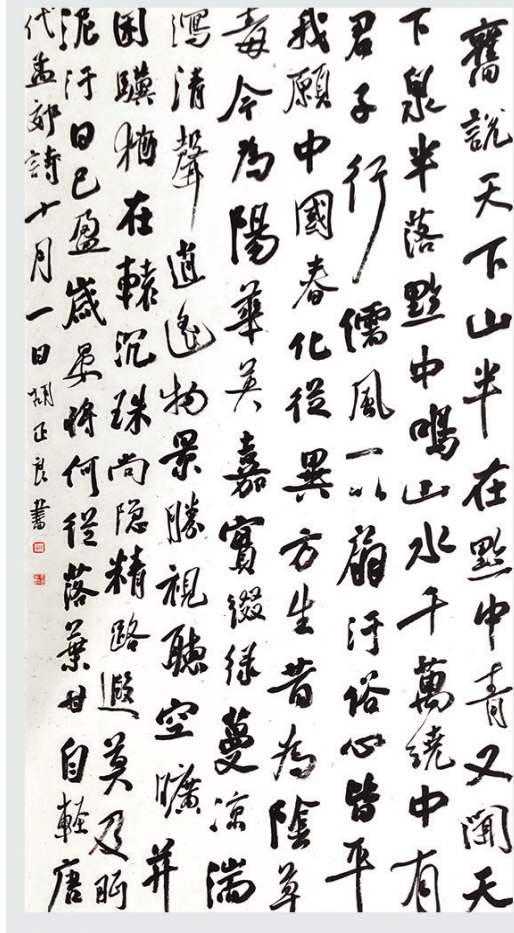 舊說天下山半在黔中青又聞天
下泉半落黔中鳴山水千萬繞中有
君子行儒風一以扇汙俗心皆平
我願中國春化從異方生昔為陰草
毒今為陽華英嘉實綴綠蔓涼湍
瀉清聲逍遙物景勝視聽空曠并
困驥猶在轅沉珠尚隐精路遐莫及眄
泥汙日已盈歲晏將何從落葉甘自輕唐
代孟郊詩十月一日胡正良書